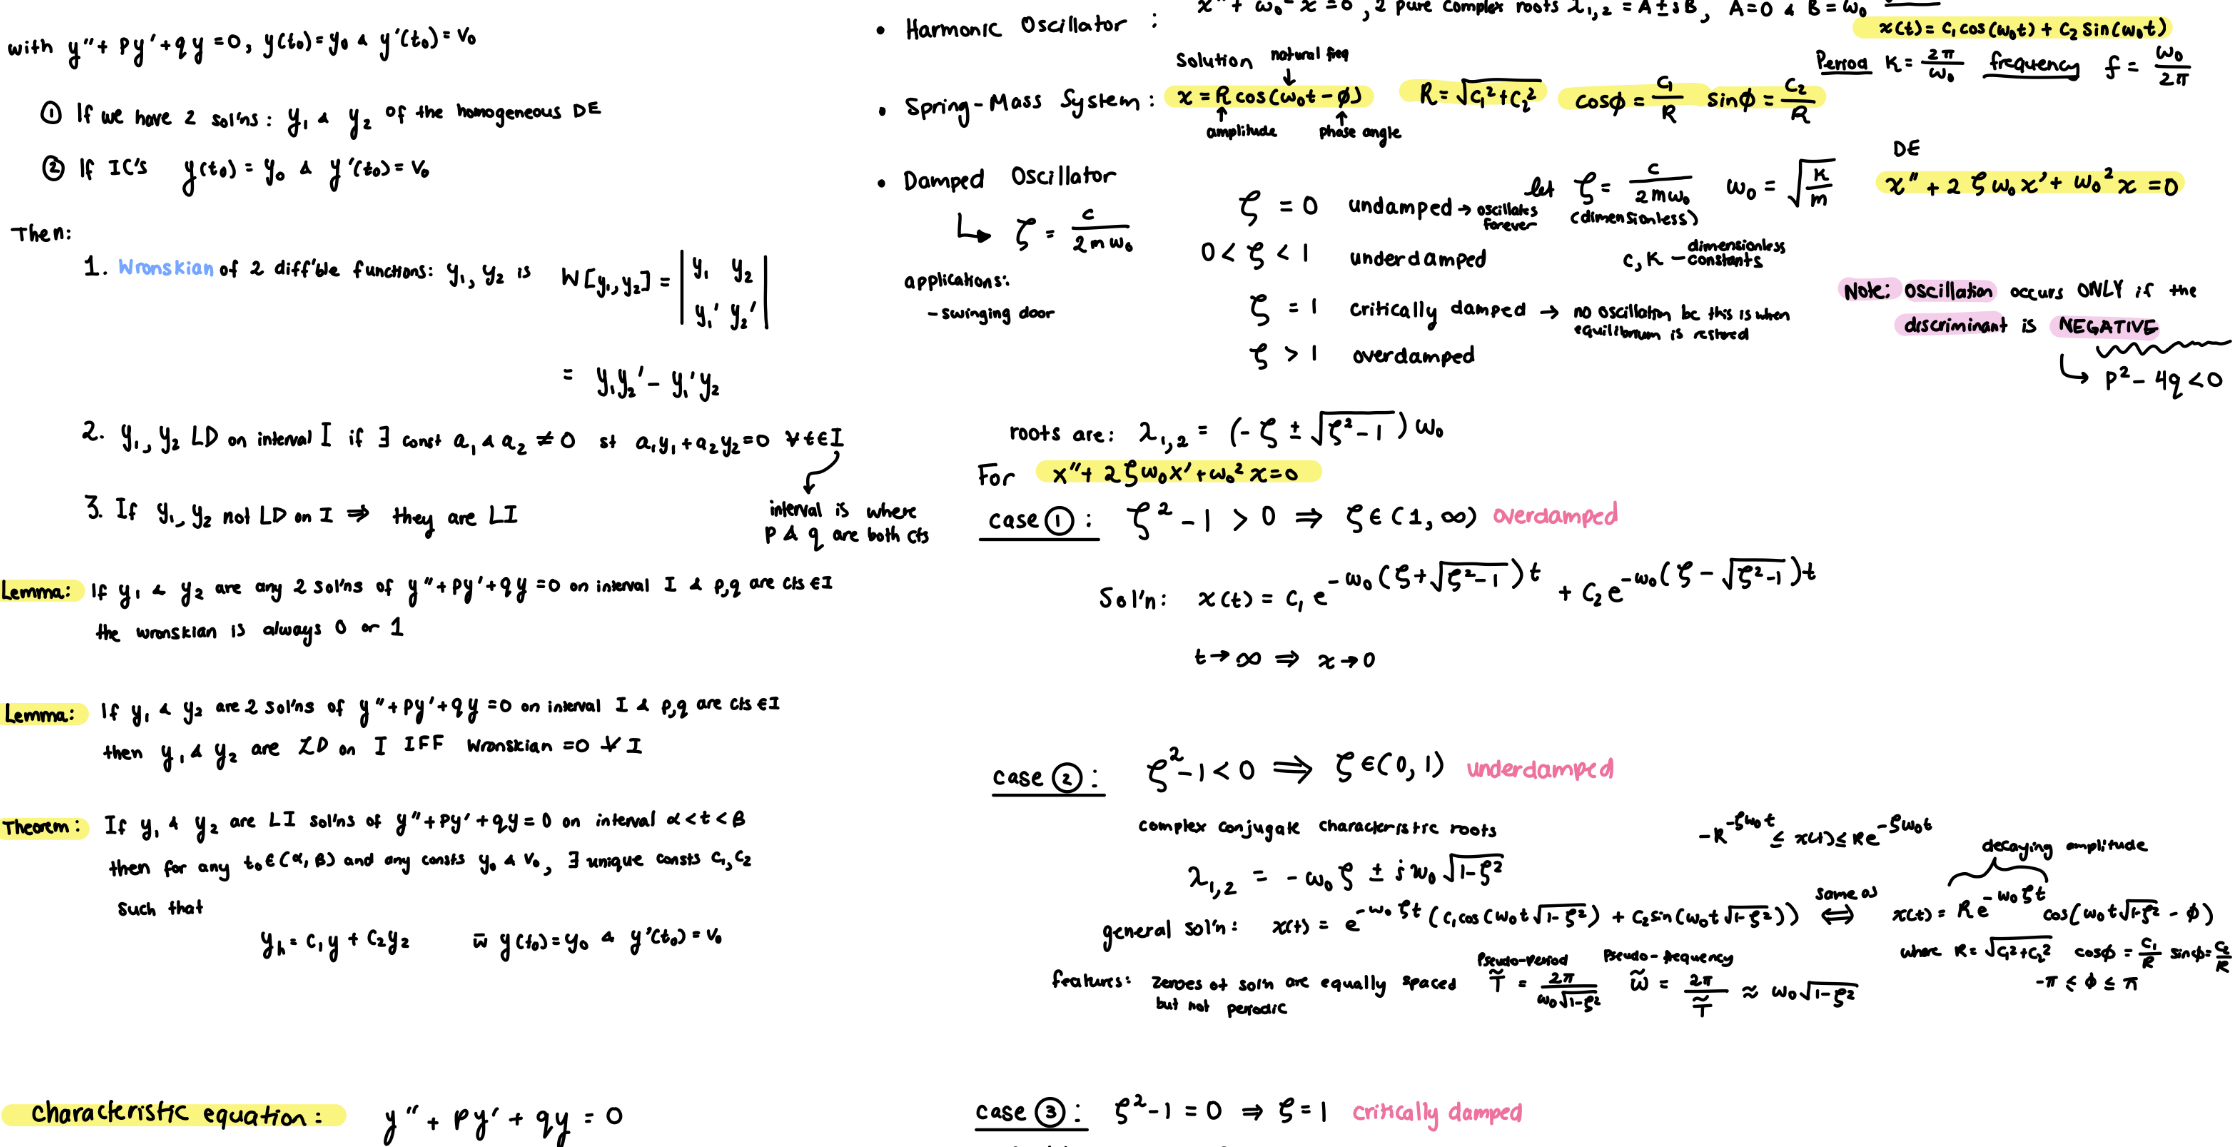 with y″ + py′ + qy = 0, y(t₀) = y₀ & y′(t₀) = v₀
① If we have 2 sol'ns: y₁ & y₂ of the homogeneous DE
② If IC's y(t₀) = y₀ & y′(t₀) = v₀
Then:
1. Wronskian of 2 diff'ble functions: y₁, y₂ is W[y₁, y₂] = | y₁ y₂ |
| y₁′ y₂′ |
= y₁y₂′ - y₁′y₂
2. y₁, y₂ LD on interval I if ∃ const a₁ & a₂ ≠ 0 st a₁y₁ + a₂y₂ = 0 ∀ t ∈ I
interval is where
p & q are both cts
3. If y₁, y₂ not LD on I ⇒ they are LI
Lemma: If y₁ & y₂ are any 2 sol'ns of y″ + py′ + qy = 0 on interval I & p,q are cts ∈ I
the wronskian is always 0 or 1
Lemma: If y₁ & y₂ are 2 sol'ns of y″ + py′ + qy = 0 on interval I & p,q are cts ∈ I
then y₁ & y₂ are LD on I IFF Wronskian = 0 ∀ I
Theorem: If y₁ & y₂ are LI sol'ns of y″ + py′ + qy = 0 on interval α < t < β
then for any t₀ ∈ (α, β) and any consts y₀ & v₀, ∃ unique consts c₁, c₂
such that
yₕ = c₁y + c₂y₂ w̄ y(t₀) = y₀ & y′(t₀) = v₀
characteristic equation: y″ + py′ + qy = 0
• Harmonic Oscillator : x″ + ω₀² x = 0, 2 pure complex roots λ₁,₂ = A ± iB, A = 0 & B = ω₀
x(t) = c₁ cos(ω₀t) + c₂ sin(ω₀t)
Period K = 2π/ω₀ frequency f = ω₀/2π
Solution natural freq
• Spring-Mass System : x = R cos(ω₀t - ϕ) R = √(c₁² + c₂²) cosϕ = c₁/R sinϕ = c₂/R
amplitude phase angle
• Damped Oscillator
↳ ζ = c/2mω₀
applications:
- swinging door
ζ = 0 undamped → oscillates forever
0 < ζ < 1 underdamped
ζ = 1 critically damped → no oscillation bc this is when
equilibrium is restored
ζ > 1 overdamped
let ζ = c/2mω₀ ω₀ = √(k/m)
(dimensionless)
c, k - dimensionless
constants
DE
x″ + 2ζω₀x′ + ω₀²x = 0
Note: oscillation occurs ONLY if the
discriminant is NEGATIVE
↳ p² - 4q < 0
roots are: λ₁,₂ = (-ζ ± √(ζ² - 1)) ω₀
For x″ + 2ζω₀x′ + ω₀²x = 0
case ① : ζ² - 1 > 0 ⇒ ζ ∈ (1, ∞) overdamped
Sol'n: x(t) = c₁ e^(-ω₀(ζ + √(ζ²-1))t) + c₂ e^(-ω₀(ζ - √(ζ²-1))t)
t → ∞ ⇒ x → 0
case ② : ζ² - 1 < 0 ⇒ ζ ∈ (0, 1) underdamped
complex conjugate characteristic roots
-R^(-ζω₀t) ≤ x(t) ≤ Re^(-ζω₀t)
λ₁,₂ = -ω₀ζ ± iω₀√(1-ζ²)
decaying amplitude
general sol'n: x(t) = e^(-ω₀ζt) (c₁cos(ω₀t√(1-ζ²)) + c₂sin(ω₀t√(1-ζ²))) same as ⇔ x(t) = Re^(-ω₀ζt) cos(ω₀t√(1-ζ²) - ϕ)
where R = √(c₁² + c₂²) cosϕ = c₁/R sinϕ = c₂/R
-π ≤ ϕ ≤ π
Pseudo-period Pseudo-frequency
features: zeroes of sol'n are equally spaced T̃ = 2π/(ω₀√(1-ζ²)) ω̃ = 2π/T̃ ≈ ω₀√(1-ζ²)
but not periodic
case ③ : ζ² - 1 = 0 ⇒ ζ = 1 critically damped